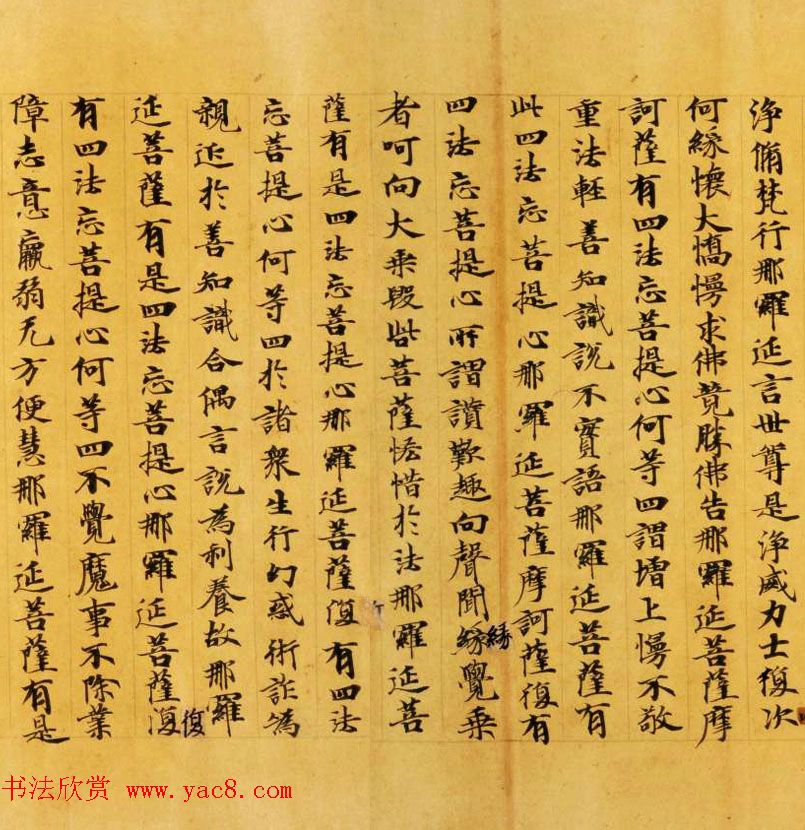 淨脩梵行那羅延言世尊是淨威力士復次
何緣懷大憍慢求佛竟勝佛告那羅延菩薩摩
訶薩有四法忘菩提心何等四謂增上慢不敬
重法輕善知識說不實語那羅延菩薩有
此四法忘菩提心那羅延菩薩摩訶薩復有
四法忘菩提心所謂讚歎趣向聲聞緣覺乘
緣
者呵向大乘毀呰菩薩悋惜於法那羅延菩
薩有是四法忘菩提心那羅延菩薩復有四法
忘菩提心何等四於諸眾生行幻惑術詐為
親近於善知識合偶言說為利養故那羅
延菩薩有是四法忘菩提心那羅延菩薩復
復
有四法忘菩提心何等四不覺魔事不除業
障志意羸弱无方便慧那羅延菩薩有是
书法欣赏 www.yac8.com